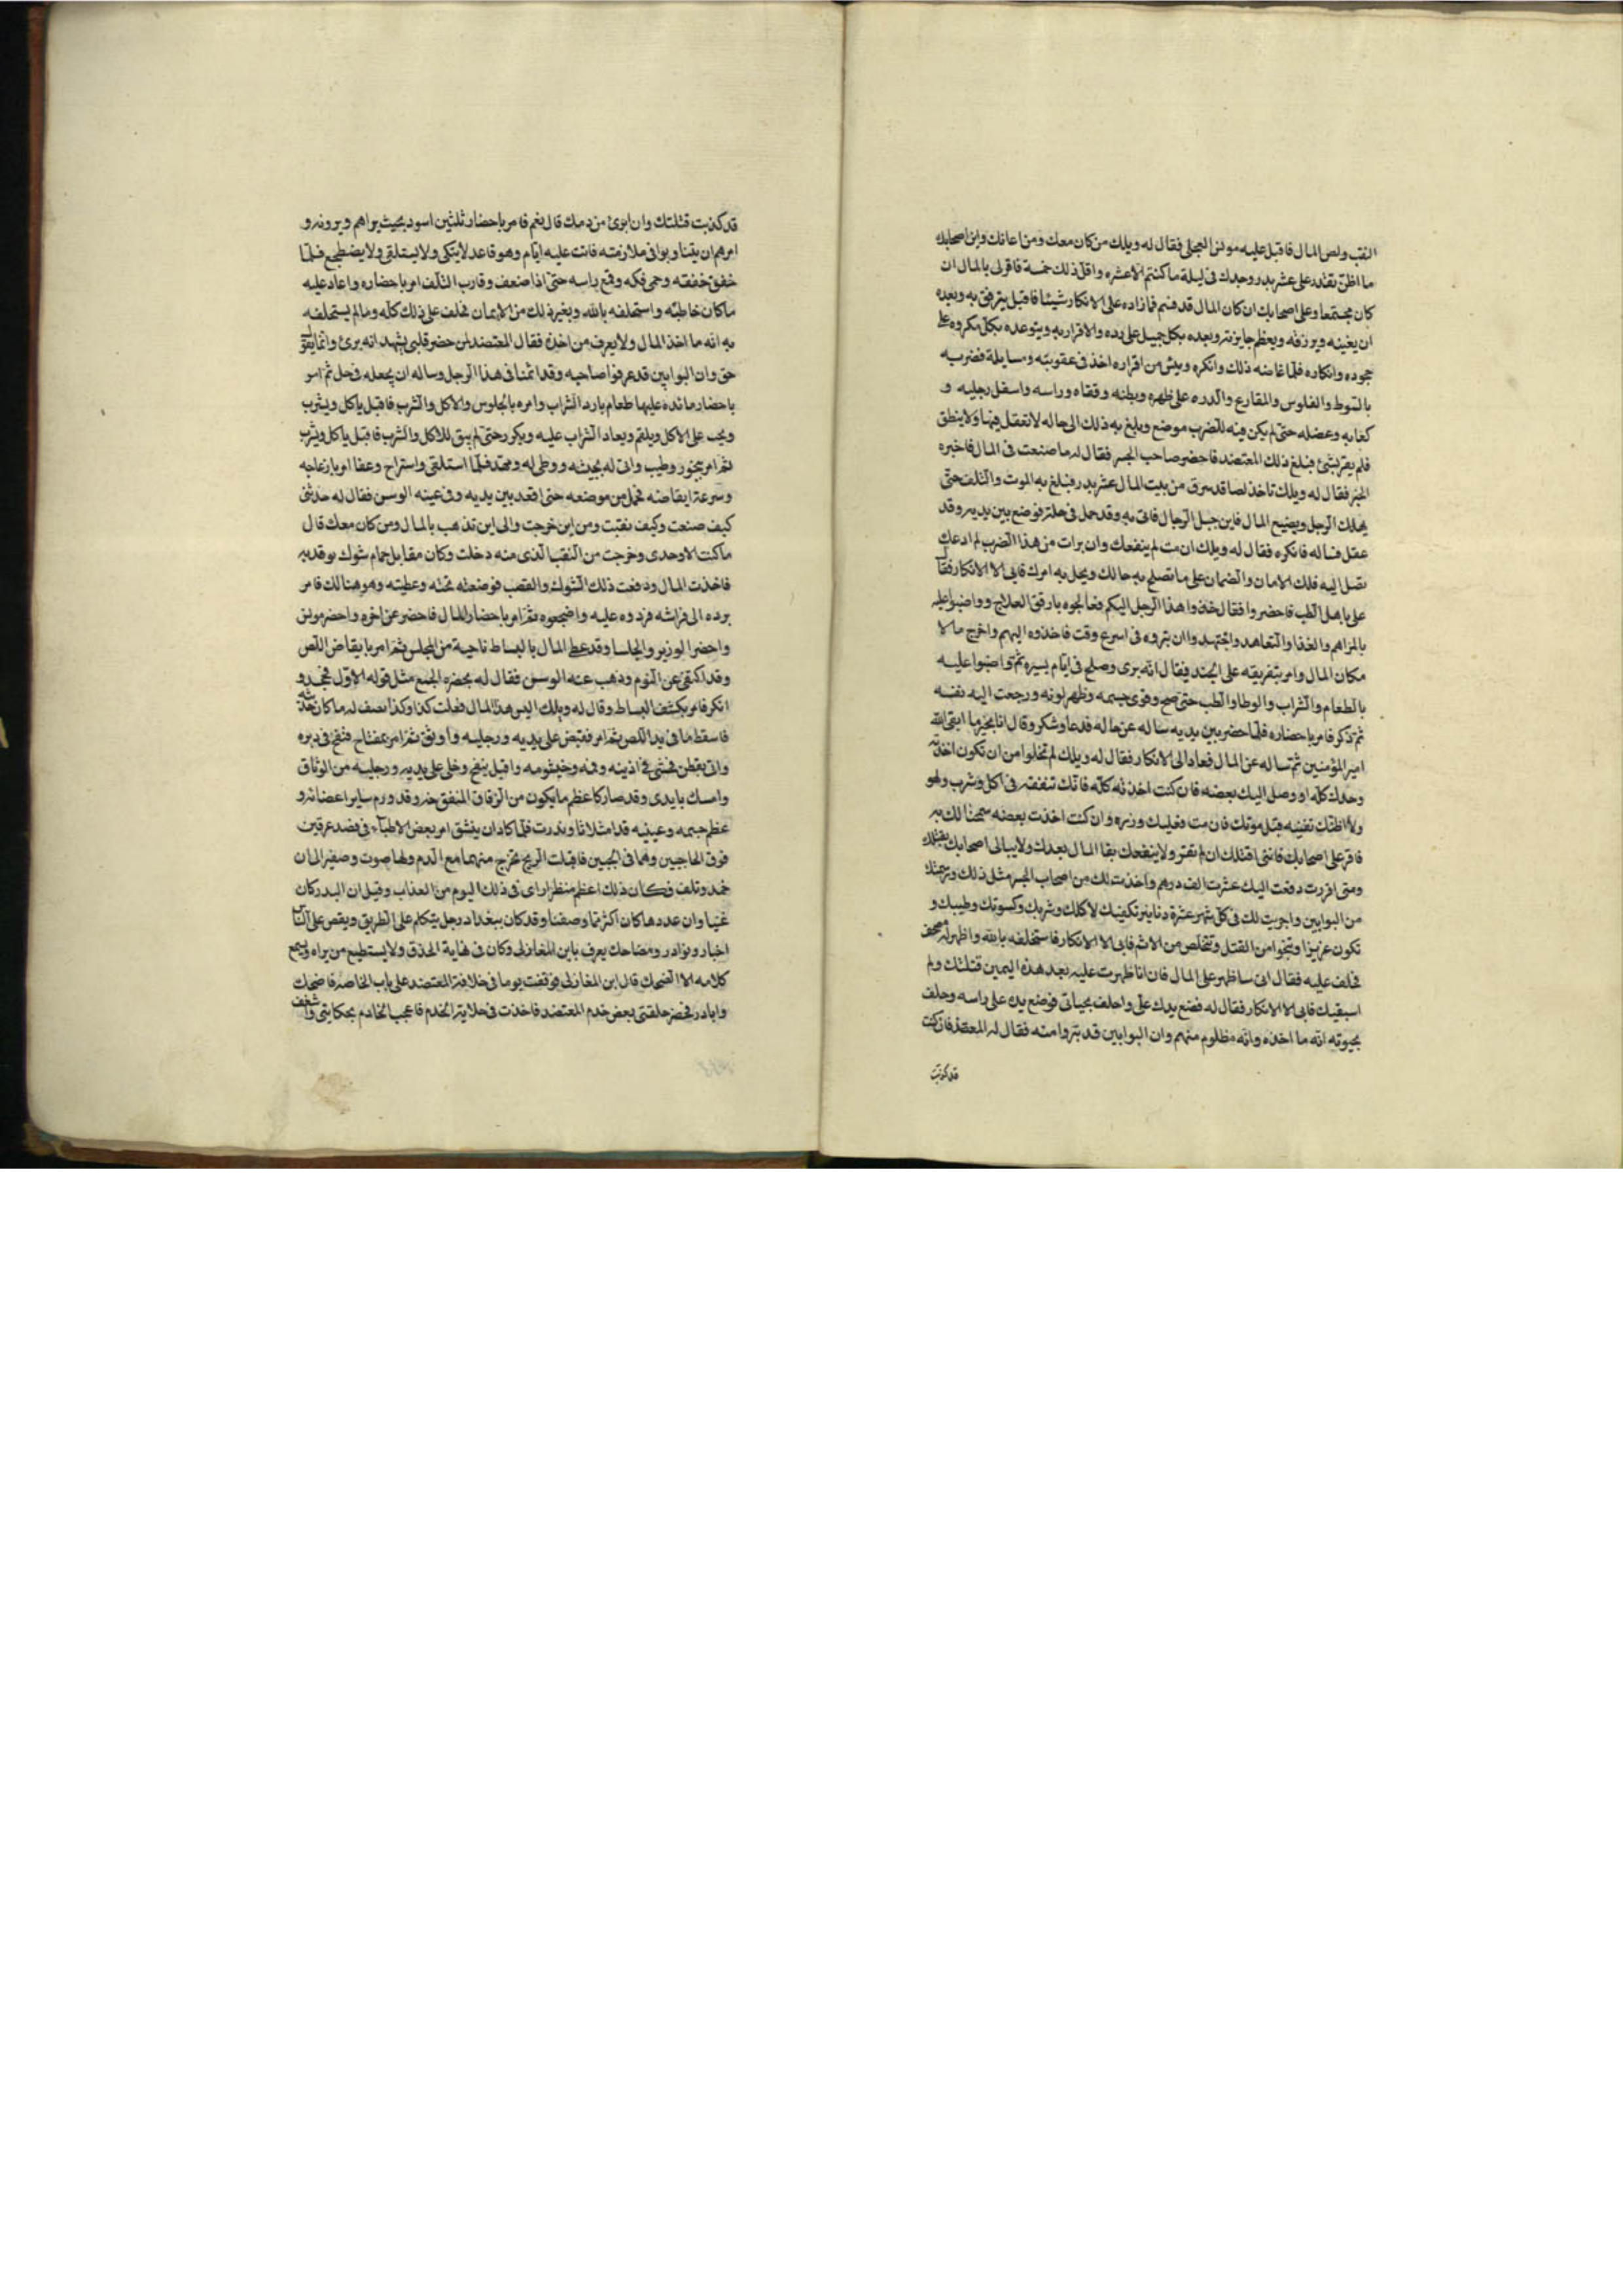 النقب ولص المال فاقبل عليه مونس العجلى فقال له ويلك من كان معك ومن اعانك واين اصحابك
ما اظن تقدر على عشر بدر وحدك فى ليلة ما كنتم الا عشره واقل ذلك خمسة فاقر لى بالمال ان
كان مجتمعا وعلى اصحابك ان كان المال قد قسم فما زاده على الانكار شيئا فاقبل يترفق به ويعده
ان يغنيه ويرزقه ويعظم جايزته ويعده بكل جميل على رده والاقرار به ويتوعده بكل مكروه على
جحوده وانكاره فلما غاضه ذلك وانكره ويئس من اقراره اخذ فى عقوبته ومسايلة فضربه
بالسوط والقلوس والمقارع والدره على ظهره وبطنه وقفاه وراسه واسفل رجليه و
كعابه وعضله حتى لم يكن فيه للضرب موضع وبلغ به ذلك الى حاله لا تعقل فيها ولا ينطق
فلم يقر بشئ فبلغ ذلك المعتضد فاحضر صاحب الجسر فقال له ما صنعت فى المال فاخبره
الخبر فقال له ويلك تاخذ لصا قد سرق من بيت المال عشر بدر فبلغ به الموت والتلف حتى
يهلك الرجل ويضيع المال فاين حيل الرجال فاتى به وقد حمل فى حلة فوضع بين يديه وقد
عقل فساله فانكره فقال له ويلك ان مت لم ينفعك وان برات من هذا الضرب لم ادعك
تصل اليه فلك الامان والضمان على ما تصلح به حالك ويحل به امرك فابى الا الانكار فقال
على باهل الطب فاحضروا فقال خذوا هذا الرجل اليكم فعالجوه بارفق العلاج وواضبوا عليه
بالمراهم والغذا والتعاهد واجتهدوا ان تبروه فى اسرع وقت فاخذوه اليهم واخرج مالا
مكان المال وامر بتفريقه على الجند فيقال انه برى وصلح فى ايام يسيره ثم واضبوا عليه
بالطعام والشراب والوطا والطب حتى صح وقوى جسمه وظهر لونه ورجعت اليه نفسه
ثم ذكر فامر باحضاره فلما حضر بين يديه ساله عن حاله فدعا وشكر وقال انا بخير ما ابقى الله
امير المؤمنين ثم ساله عن المال فعاد الى الانكار فقال له ويلك لم تخلوا من ان تكون اخذته
وحدك كله او وصل اليك بعضه فان كنت اخذته كله فانك تنفقه فى اكل وشرب ولهو
ولا اظنك تفنيه قبل موتك فان مت فعليك وزره وان كنت اخذت بعضه سمحنا لك به
فاقر على اصحابك فاننى اقتلك ان لم تقر ولا ينفعك بقا المال بعدك ولا يبالى اصحابك بقتلك
ومتى اقررت دفعت اليك عشرت الف درهم واخذت لك من اصحاب الجسر مثل ذلك
من البوابين واجريت لك فى كل شهر عشرة دنانير تكفيك لاكلك وشربك وكسوتك وطيبك و
تكون عزيزا وتنجوا من القتل وتتخلص من الاثم فابى الا الانكار فاستحلفه بالله واظهر له مصحف
فحلف عليه فقال انى ساظهر على المال فان انا ظهرت عليه بعد هذه اليمين قتلتك ولم
استبقيك فابى الا الانكار فقال له فضع يدك على واحلف بحياتى فوضع يده على راسه وحلف
بحيوته انه ما اخذه وانه مظلوم منهم وان البوابين قد تبروا منه فقال له المعتضد فان كنت
قد كذبت
قد كذبت قتلتك وان ابرئ من دمك قال نعم فامر باحضار ثلثين اسود بحيث يراهم ويرونه و
امرهم ان يتناوبوا فى ملازمته فاتت عليه ايام وهو قاعد لا يتكى ولا يستلقى ولا يضطجع فلما
خفق خفقه وحى فكه وقمع راسه حتى اذا ضعف وقارب التلف امر باحضاره واعاد عليه
ما كان خاطبه واستحلفه بالله وبغير ذلك من الايمان فحلف على ذلك كله وما لم يستحلفه
به انه ما اخذ المال ولا يعرف من اخذه فقال المعتضد لمن حضر قلبى يشهد انه برئ وانما يقول
حق وان البوابين قد عرفوا صاحبه وقد اثمنا فى هذا الرجل وساله ان يجعله فى حل ثم امر
باحضار مائده عليها طعام بارد الشراب وامره بالجلوس والاكل والشرب فاقبل ياكل ويشرب
ويحث على الاكل ويلقم ويعاد الشراب عليه ويكرر حتى لم يبق للاكل والشرب فاقبل ياكل ويشرب
ثم امر ببخور وطيب واتى له بحيثه ووطى له ومهد فلما استلقى واستراح وغفا امر بازعاجه
وسرعة ايقاضه فحمل من موضعه حتى اقعد بين يديه وفى عينه الوسن فقال له حدثنى
كيف صنعت وكيف نقبت ومن اين خرجت والى اين تذهب بالمال ومن كان معك قال
ما كنت الا وحدى وخرجت من النقب الذى منه دخلت وكان مقابل حمام شوك يوقد به
فاخذت المال ودفعت ذلك الشوك والقصب فوضعته تحته وغطيته وهو هنالك فامر
برده الى فراشه فردوه عليه واضجعوه ثم امر باحضار المال فاحضر عن اخره واحضر مونس
واحضر الوزير والجلسا وقد غطى المال بالبساط ناحية من المجلس ثم امر بايقاض اللص
وقد اكتفى من النوم وذهب عنه الوسن فقال له بحضره الجمع مثل قوله الاول فجحد و
انكر فامر بكشف البساط وقال له ويلك اليس هذا المال فعلت كذا وكذا يصف له ما كان حدثه
فاسقط ما فى يد اللص ثم امر فقبض على يديه ورجليه واوثق ثم امر بمنفاخ فنفخ فى دبره
واتى بقطن فحشى فى اذنيه وفمه وخيشومه واقبل ينفخ وخلى على يديه ورجليه من الوثاق
وامسك بايدى وقد صار كاعظم ما يكون من الزقاق المنفخ وقد ورم ساير اعضائه و
عظم جسمه وعينيه قد امتلاتا وبدرت فلما كاد ان ينشق امر بعض الاطباء فى فصد عرقين
فوق الحاجبين وهما فى الجبين فاقبلت الريح تخرج منهما مع الدم ولها صوت وصفير الى ان
خمد وتلف فكان ذلك اعظم منظر اراى فى ذلك اليوم من العذاب وقيل ان البدر كان
عينا وان عددها كان اكثر مما وصفنا وقد كان ببغداد رجل يتكلم على الطريق ويقص على الناس
اخبار ونوادر ومضاحك يعرف بابن المغازلى وكان فى نهاية الحذق ولا يستطيع من يراه ويسمع
كلامه الا الضحك قال ابن المغازلى فوقفت يوما فى خلافة المعتضد على باب الخاصه فاضحك
وانادر فحضر حلقتى بعض خدم المعتضد فاخذت فى حكاية الخدم فاعجب الخادم بحكايتى وشغف